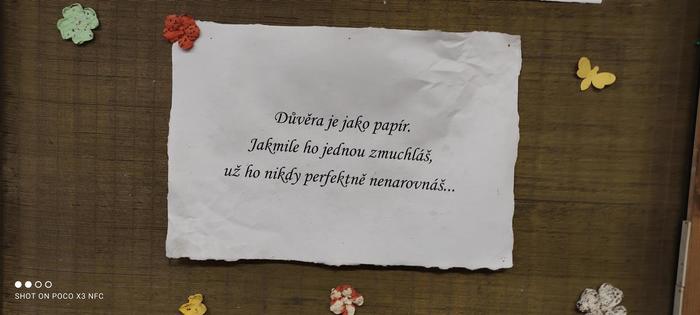 Důvěra je jako papír.
Jakmile ho jednou zmuchláš,
už ho nikdy perfektně nenarovnáš...
SHOT ON POCO X3 NFC